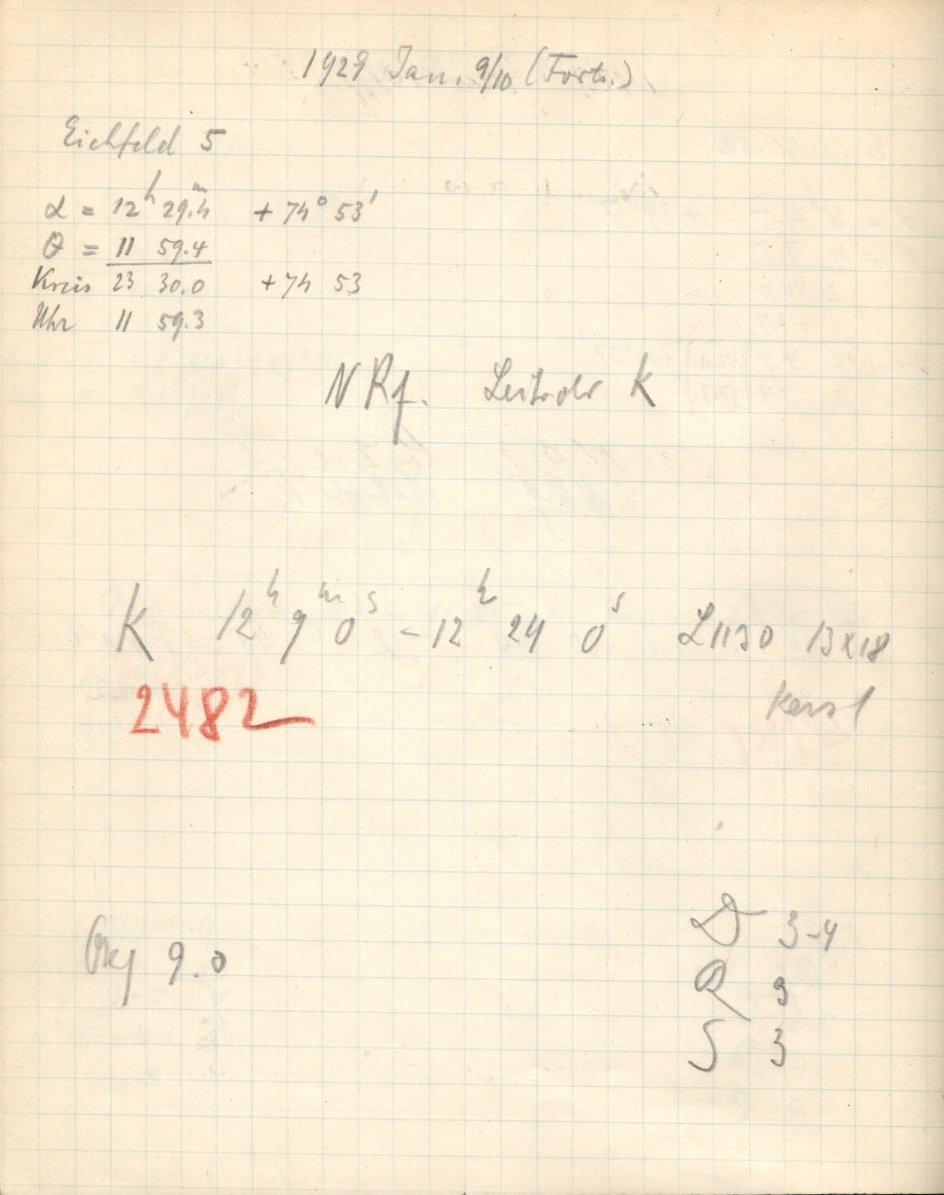 1929 Jan. 9/10 (Forts.)
Eichfeld 5
α = 12ʰ 29.4ᵐ + 74° 53'
θ = 11 59.4
Kreis 23 30.0 + 74 53
Uhr 11 59.3
N Rf. Leitrohr K
K 12ʰ 9ᵐ 0ˢ - 12ʰ 24 0ˢ L1130 13x18
2482
Okj 9.0
D 3-4
R 3
S 3